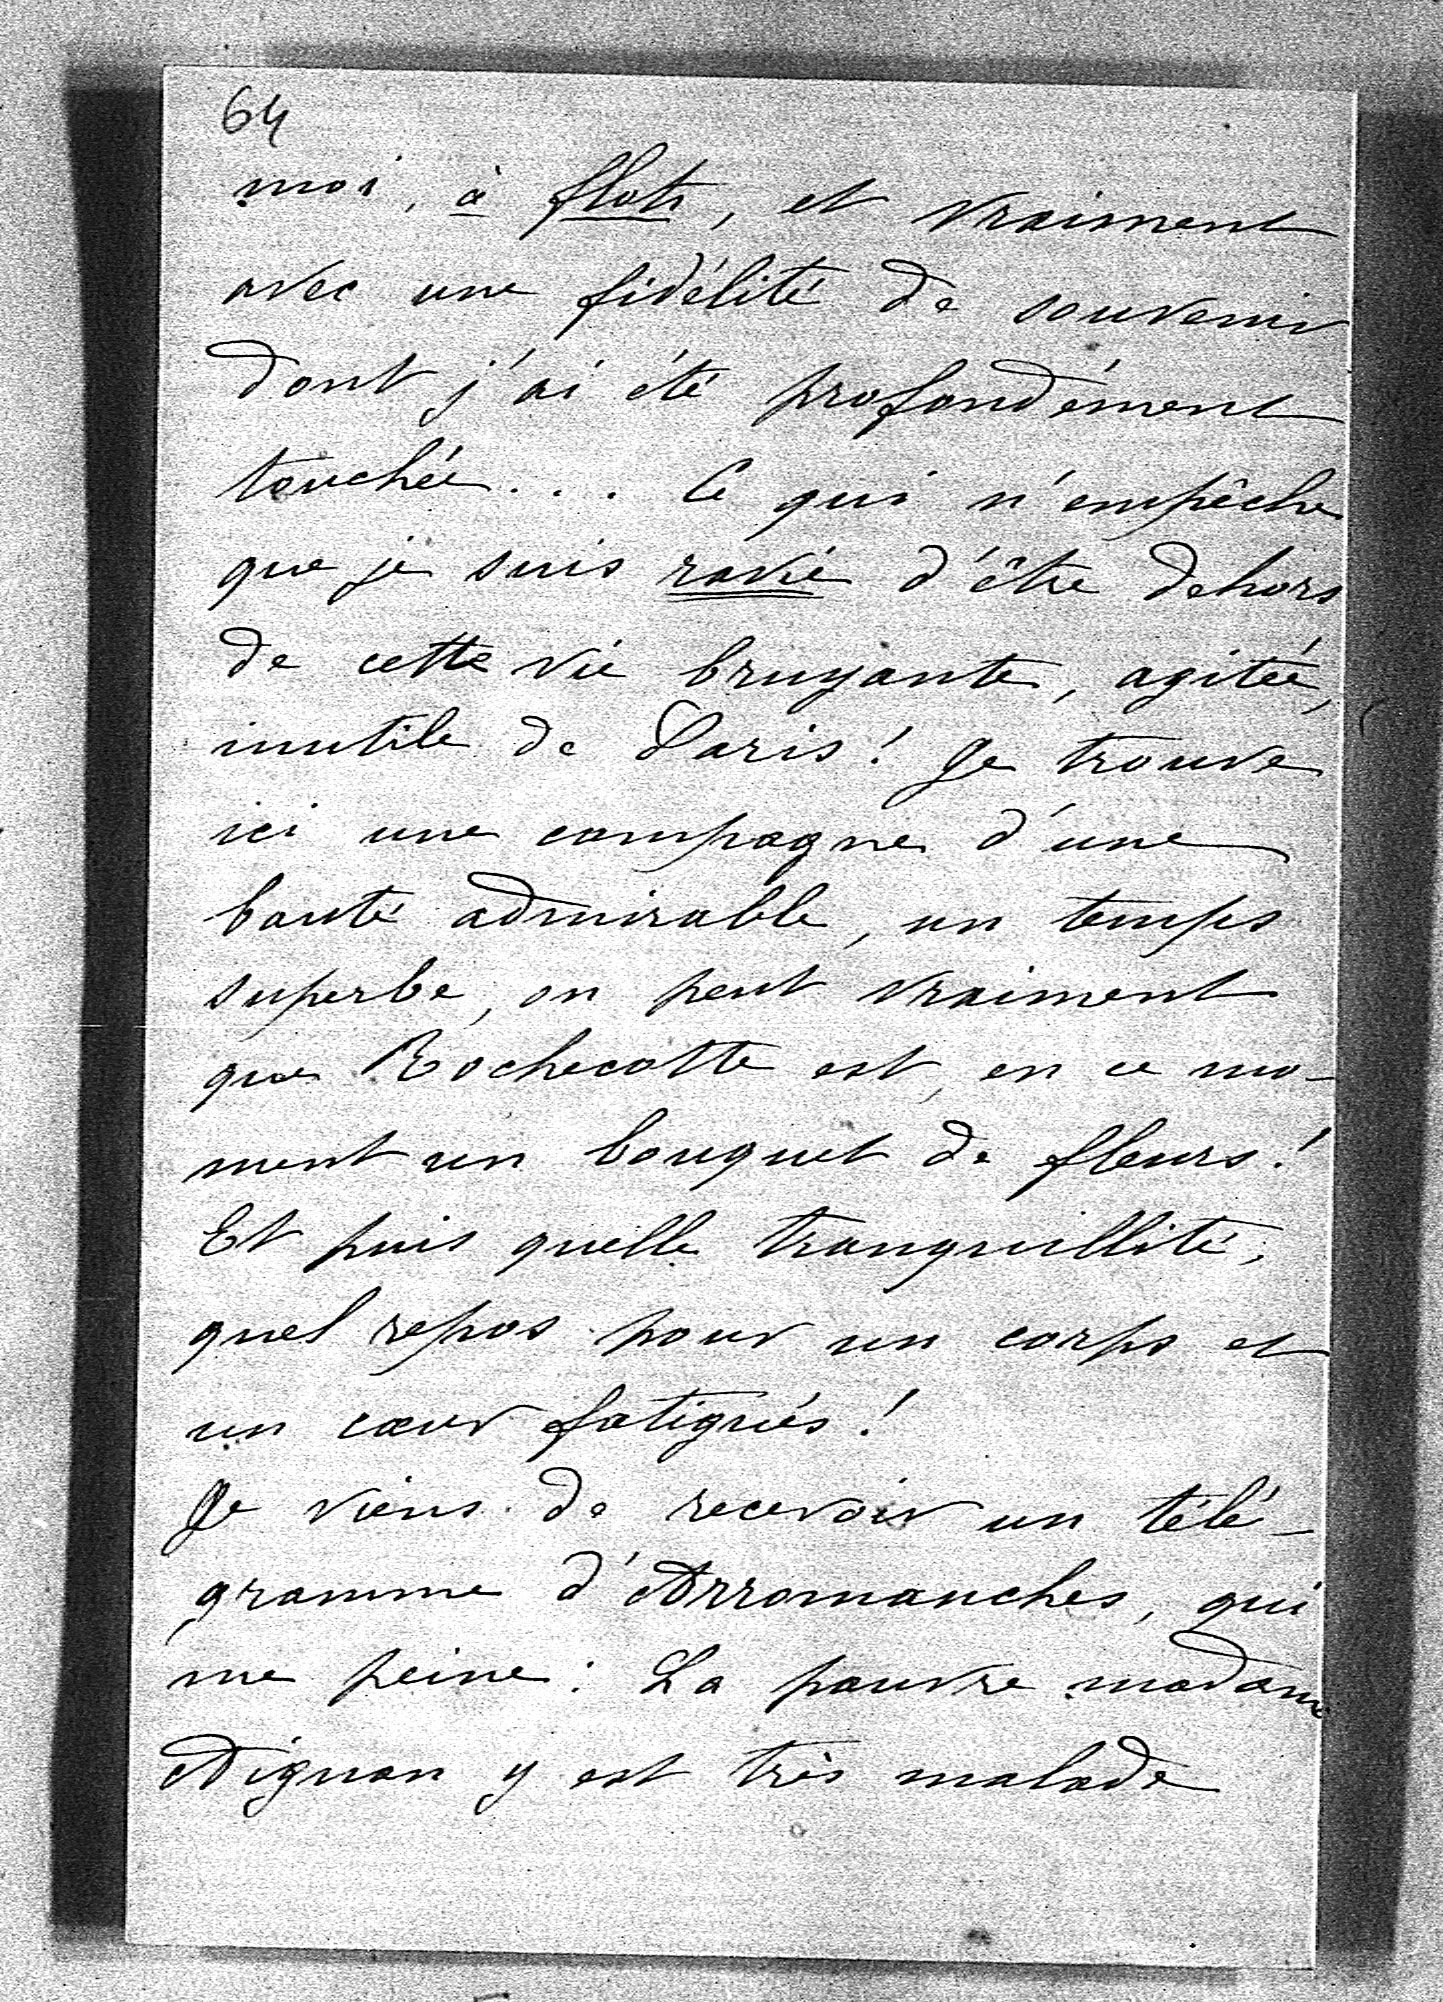 64
moi, à flots, et vraiment
avec une fidélité de souvenir
dont j'ai été profondément
touchée... Ce qui n'empêche
que je suis ravie d'être dehors
de cette vie bruyante, agitée,
inutile de Paris! Je trouve
ici une campagne d'une
beauté admirable, un temps
superbe, on peut vraiment
que Rochecotte est, en ce mo-
ment un bouquet de fleurs!
Et puis quelle tranquillité,
quel repos pour un corps et
un cœur fatigués!
Je viens de recevoir un télé-
gramme d'Arromanches, qui
me peine: La pauvre madame
Aignan y est très malade